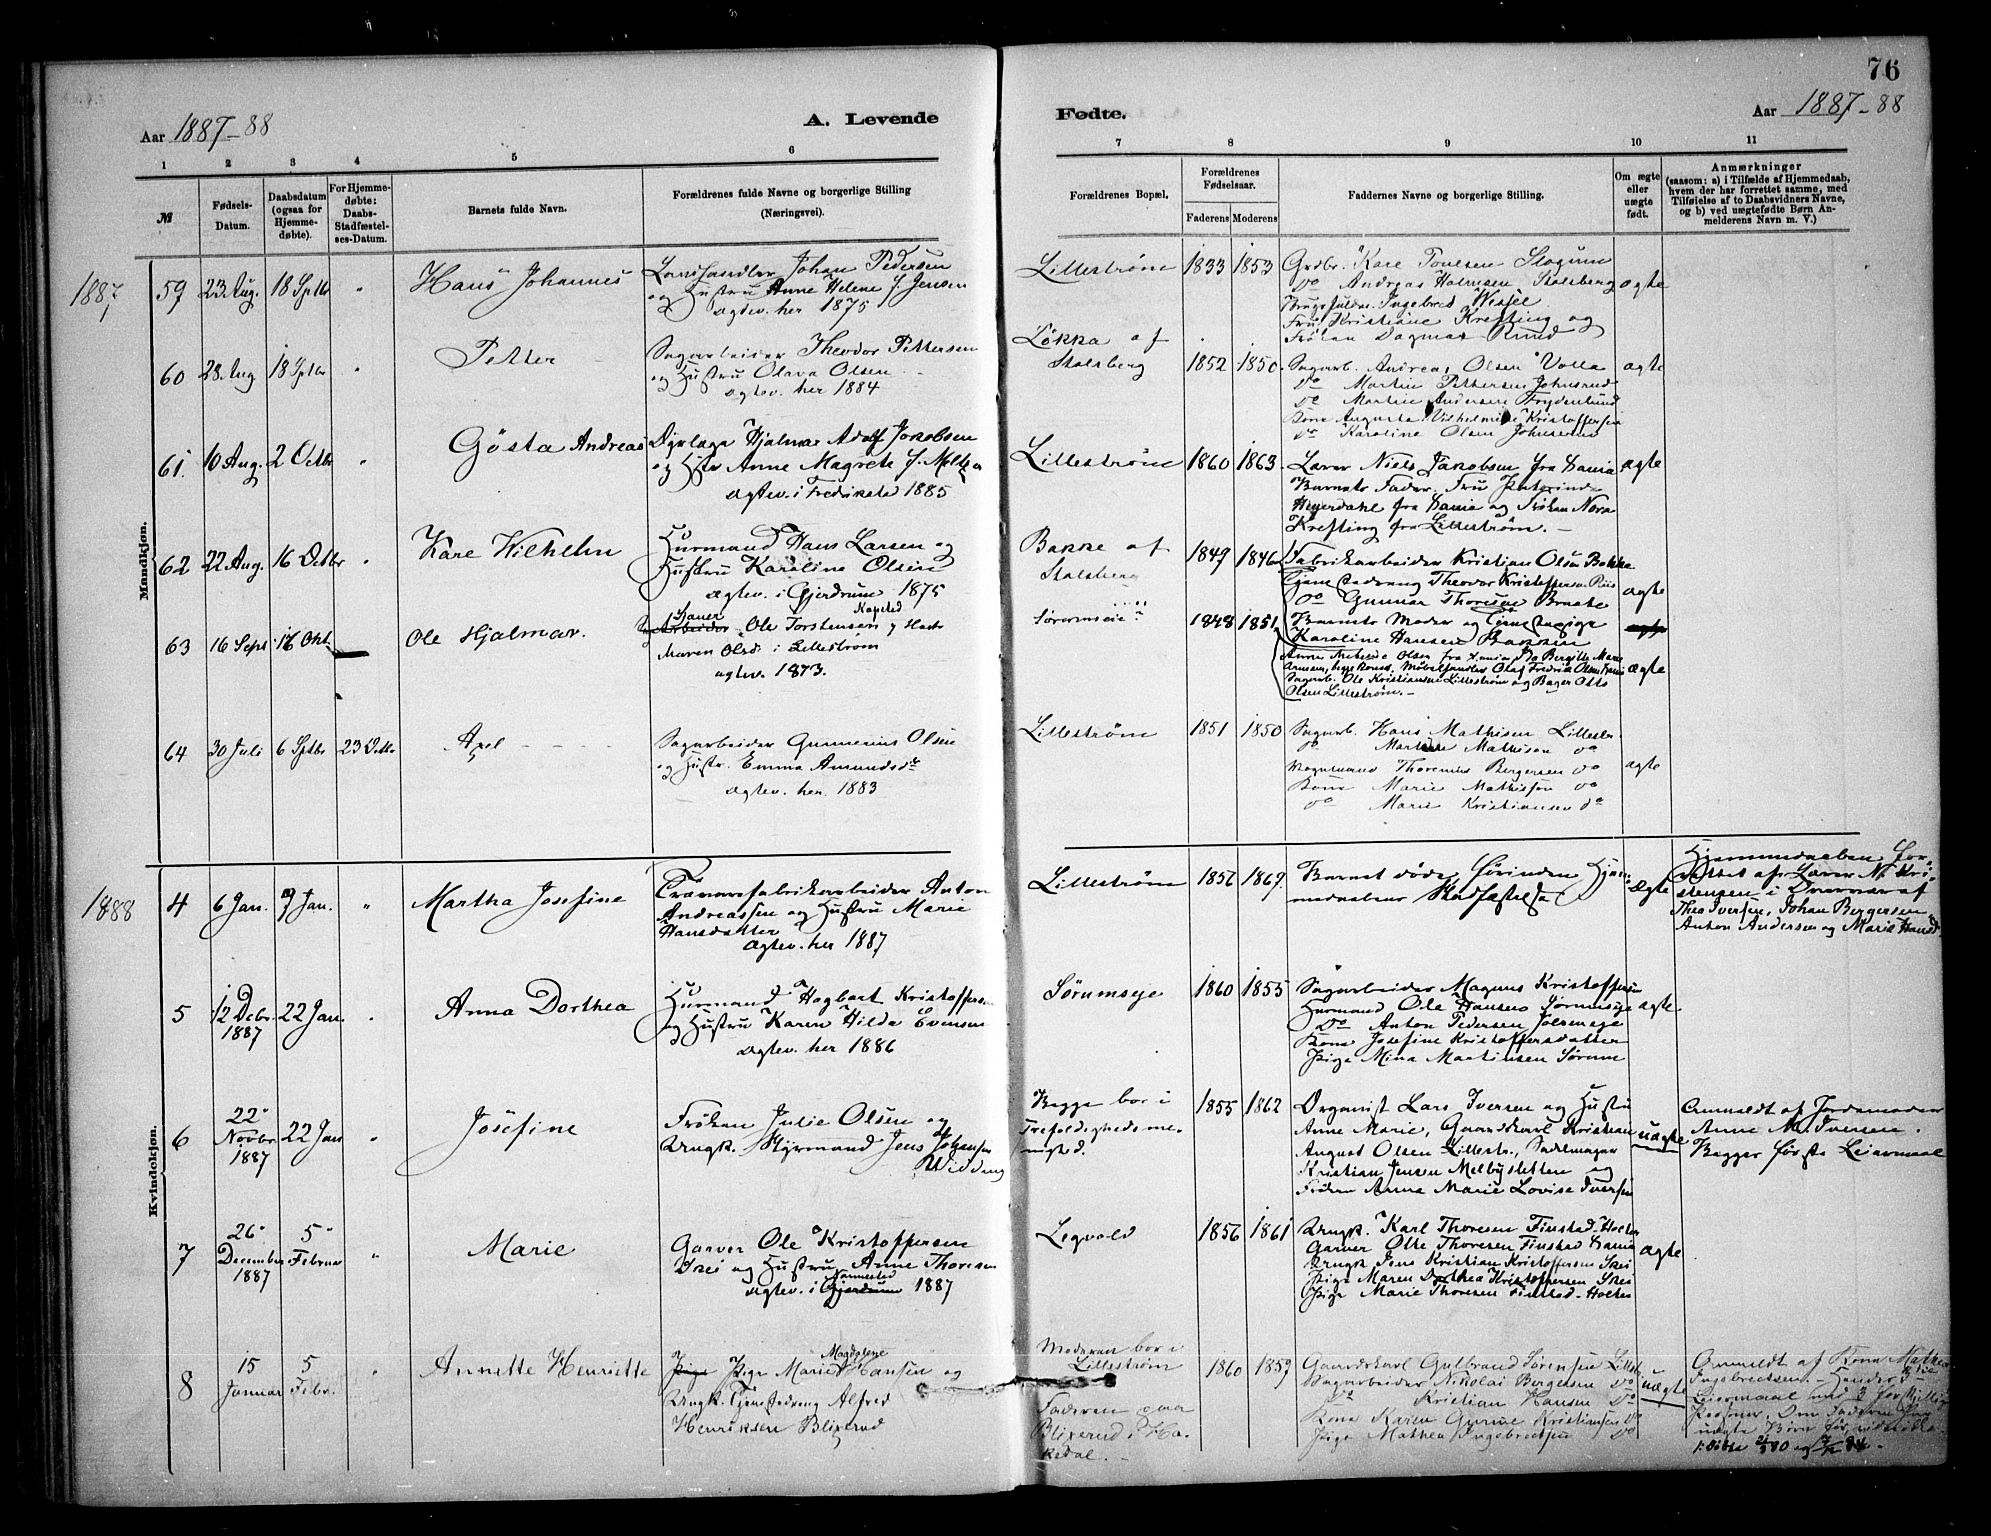 76
Aar 1887-88
A. Levende
Fødte.
Aar 1887-88
1 2 3 4 5 6 7 8 9 10 11
№
Fødsels-
Datum.
Daabsdatum
(ogsaa for
Hjemme-
døbte).
For Hjemme-
døbte:
Daabs-
Stadfæstel-
ses-Datum.
Barnets fulde Navn.
Forældrenes fulde Navne og borgerlige Stilling
(Næringsvei).
Forældrenes Bopæl.
Forældrenes
Fødselsaar.
Faderens Moderens
Faddernes Navne og borgerlige Stilling.
Om ægte
eller
uægte
født.
Anmærkninger
(saasom: a) i Tilfælde af Hjemmedaab,
hvem der har forrettet samme, med
Tilføielse af to Daabsvidners Navne,
og b) ved uægtefødte Børn An-
melderens Navn m. V.)
Mandkjøn.
1887
59 23 Aug. 18 Sptbr " Hans Johannes
Landhandler Johan Pedersen
og Hustru Anne Helene f. Jensen
ægtev. her 1875
Lillestrøm 1833 1853
Andreas Halvorsen Stalsberg
Ingebret Wessel
Fru Kristiane Krefting og
Frøken Dagmar Ruud
ægte
60 28. Aug 18 Sptbr " Petter
Sagarbeider Theodor Pettersen
og Hustru Olava Olsen
ægtev. her 1884
Løkka af
Stalsberg
1852 1850
Sagarb. Andreas Olsen Volla
do Martin Pettersen Johnsrud
do Martin Andersen Frydenlund
Kone Auguste Vilhelmine Kristoffersen
do Karoline Olsen Johnsrud
ægte
61. 10 Aug. 2 Octbr " Gösta Andreas
Dyrlæge Hjalmar Adolf Jakobsen
og Hstr Anne Magrete f.
ægtev. i Fredriksted 1885
Lillestrøm 1860 1863
Lærer Niels Jakobsen fra Xania
Barnets Fader. Fru
Heyerdahl fra Xania og Frøken Nora
Krefting fra Lillestrøm. -
ægte
62 22 Aug. 16 Octbr " Kare Wilhelm
Husmand Hans Larsen og
Hustru Karoline Olsen
ægtev. i Gjerdrum 1875
Bakke af
Stalsberg
1849 1846
Fabrikarbeider Kristian Olsen Bakke
Tjenestedreng Theodor Kristoffersen Riis
do Gunnar Thoresen Braate
Barnets Moder og Tjenestepige
Karoline Hansen Bakken
ægte
63 16 Sept 16 Okt. Ole Hjalmar.
Ole Torstensen
Maren Olsd. i Lillestrøm
ægtev. 1873.
1848 1851
Anne Mathilde Olsen fra Xania
Olaf Fredrik Olsen
Sagarb. Ole Kristiansen Lillestrøm og Bager Otto
Olsen Lillestrøm. -
ægte
64 30 Juli 6 Sptbr 23 Octbr Axel
Sagarbeider Gunnerius Olsen
og Hustr. Emma Amundsdtr
ægtev. her 1883
Lillestrøm 1851 1850
Sagarb. Hans Mathisen Lillestr
do Martin Mathisen do
Thorenius Bergersen do
Kone Marie Mathisen do
do Marie Kristiansen do
ægte
Kvindekjøn.
1888
4 6 Jan. 9 Jan. " Martha Josefine
Trævarefabrikarbeider Anton
Andreassen og Hustru Marie
Hansdatter
ægtev. her 1887
Lillestrøm 1857 1869
Barnet døde førinden Hjem-
medaabens Stadfæstelse
ægte
Hjemmedaaben for-
rettet af Lærer N. Kri-
stensen i Overvær af
Theo Iversen, Johan Bergersen
Anton Andersen og Marie Hansd
5 12 Decbr. 1887 22 Jan. " Anna Dorthea
Husmand Hagbart Kristoffersen
og Hustru Karen Hilda Evensen
ægtev. her 1886
Sørumseye 1860 1855
Sagarbeider Magnus Kristoffersen
Husmand Ole Hansen Sørumseye
do Anton Pedersen
Kone Josefine Kristoffersdatter
Pige Mina Martinsen Sørum
ægte.
6 22 Novbr. 1887 22 Jan " Josefine
Frøken Julie Olsen og
Ungk. Styrmand Jens Johansen
Widding
Begge bor i
Trefoldighedsme-
nighed.
1855 1862
Organist Lars Iversen og Hustru
Anne Marie, Gaardskarl Kristian
August Olsen Lillestr., Sadelmager
Kristian Jensen Melbysletten og
Frøken Anna Marie Lovise Iversen
uægte
Anmeldt af Jordemoder
Anne M. Iversen.
Begges første Leiermaal
7 26 December 1887 5 Februar " Marie
Garver Ole Kristoffersen
Skei og Hustru Anne Thoresen
ægtev. i Gjerdrum Nannestad 1887
Legvold 1856 1861
Ungk. Karl Thoresen Finstad-Holter
Garver Otto Thoresen Finstad Xania
Ungk Jens Kristian Kristoffersen Skei
Pige Maren Dorthea Kristoffersen Skei
Pige Marie Thoresen Finstad-Holter
ægte
8 15 Januar 5 Febr. " Annette Henriette
Pige Pige Marie Magdalene Hansen og
Ungk. Tjenestedreng Alfred
Henriksen Blixerud
Moderen bor i
Lillestrøm
Faderen paa
Blixerud i Ha-
kedal. -
1860 1859
Gaardskarl Gulbrand Sørensen Lillest
Sagarbeider Nikolai Bergersen do
do Kristian Hansen do
Kone Karen Gunne Kristiansen do
Pige Mathea Ingebretsen do
uægte
Anmeldt af Kone Mathea
Ingebretsen. - Hendes 3die
Leiermaal med 3 forskjellige
Personer. Om Faderen har
uægte Børn før, vides ikke.